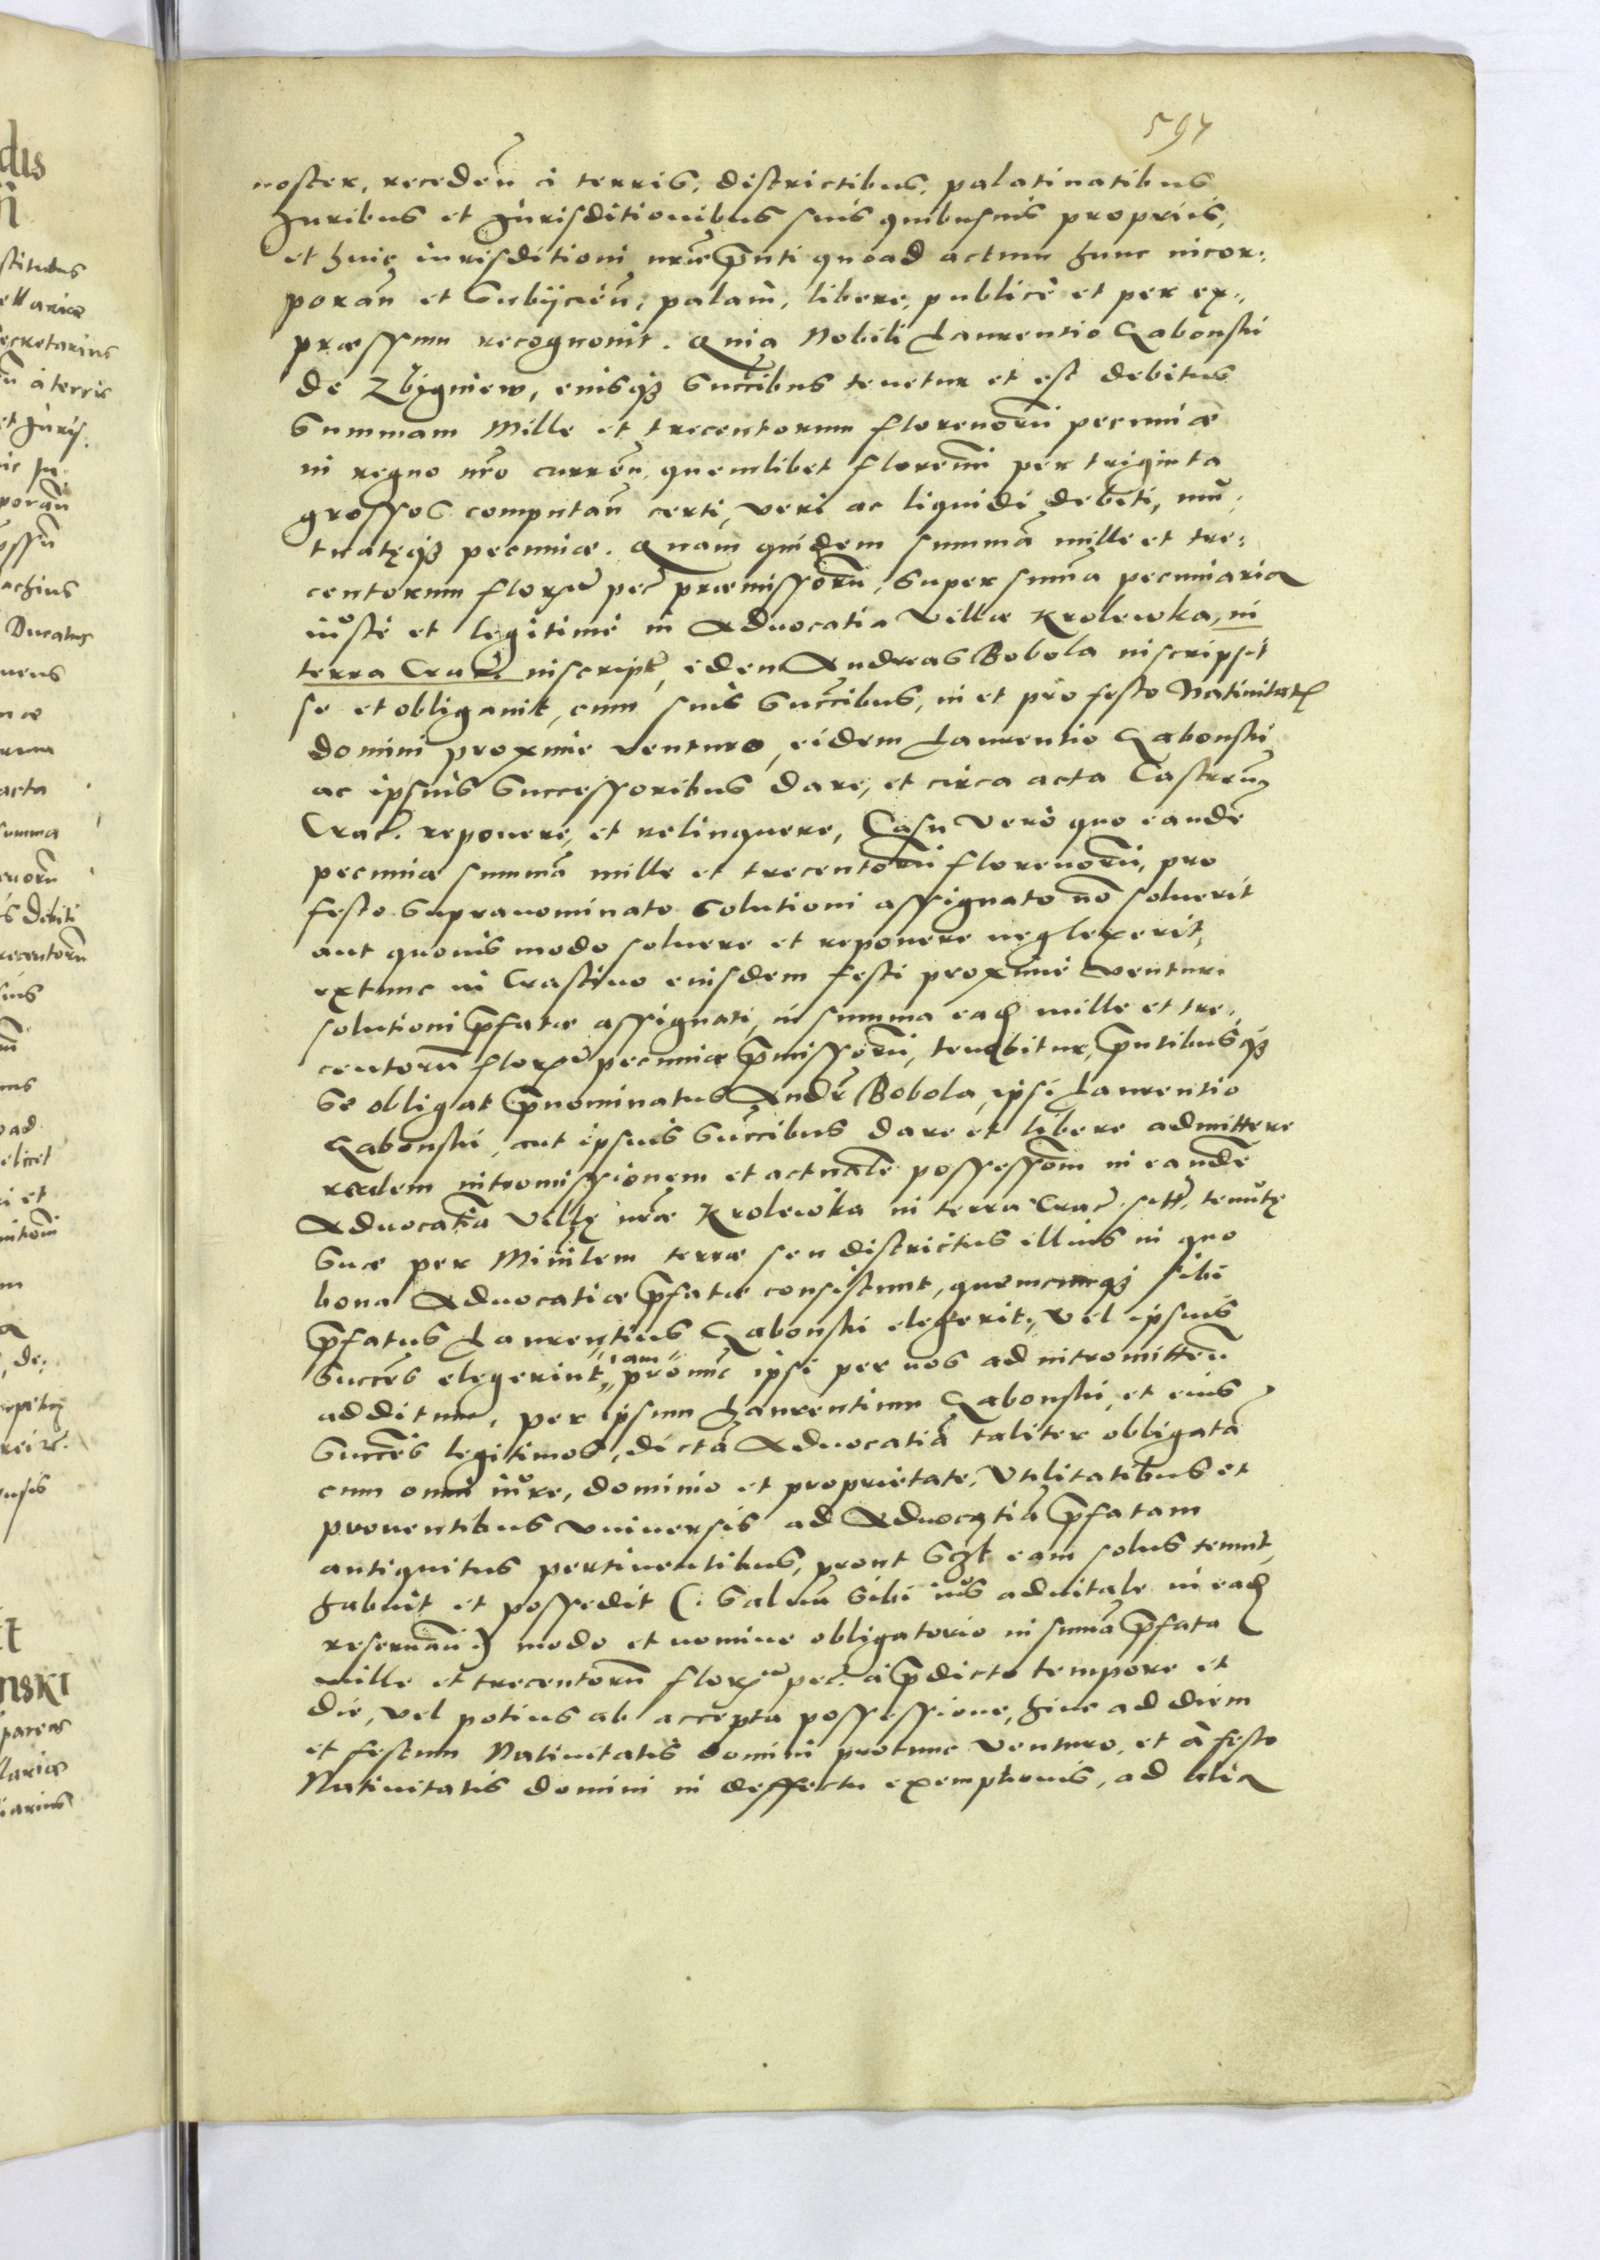 594
noster, recedeñ à terris, districtibus, palatinatibus
Juribus et Jurisditionibus suis quibusuis proprijs,
et huic iurisditioni nr̃æ p̃nti quoad actum hunc incor:
porañ et Subijcieñ, palam, libere, publicè et per ex:
præssum recognouit. Quia Nobili Laurentio Gabonski
de Zbigniew, eiusq3 Succ̃ibus tenetur et est debitus
Summam Mille et trecentorum florenorũ pecuniæ
in regno nr̃o curreñ, quemlibet florenũ per triginta
grossos computañ certi, veri ac liquidi debiti, mu:
tuatęq3 pecuniæ. Quam quidem summã mille et tre:
centorum flor: pec: præmissorũ, super sum̃a pecuniaria
iustè et legitimè in Aduocatia Villæ Krolewka, in
terra Crac: inscript, idem Andreas Bobola inscripsit
se et obligauit, cum suis Succ̃ibus, in et pro festo Natiuitatis
domini proxime venturo, eidem Laurentio Gabonski
ac ipsius Successoribus dare, et circa acta Castreñ
Crac. reponere, et relinquere, Casu verò quo eandẽ
pecuniæ summã mille et trecentorũ florenorũ, pro
festo supranominato solutioni assignato nõ soluerit
aut quouis modo soluere et reponere neglexerit,
extunc in Crastino eiusdem festi proximè venturi
solutioni p̃fatæ assignati, in summa eadẽ mille et tre:
centorũ flor: pecuniæ p̃missorũ, tenebitur, p̃ntibusq3
se obligat p̃nominatus Andr̃ Bobola, ipsi Laurentio
Gabonski, aut ipsius Succ̃ibus dare et libere admittere
realem intromissionem et actualẽ possessiõm in eandẽ
Aduocatiã Villę nr̃æ Krolewka in terra Crac: sitt, tenutę
suæ per Min̄lem terræ seu districtus illius in quo
bona Aduocatiæ p̃fatæ consistunt, quemcunq3 sibi
p̃fatus Laurentius Gabonski elegerit, vel ipsius
Succ̃es elegerint, iam pronunc ipsi per nos ad intromitteñ
additum, per ipsum Laurentium Gabonski, et eius
Succ̃es legitimos, dictã Aduocatiã taliter obligatã
cum omni iure, dominio et proprietate, Vtilitatibus et
prouentibus vniuersis ad Aduocatiã p̃fatam
antiquitus pertinentibus, prout eam solus tenuit,
habuit et possedit (: Saluũ Sibi ius aduitale in eadẽ
reseruañ :) modo et nomine obligatorio in sum̃a p̃fata
mille et trecentorũ flor: pec: à p̃dicto tempore et
die, vel potius ab accepta possessione, hinc ad diem
et festum Natiuitatis domini protunc venturo, et à festo
Natiuitatis domini in deffectu exemptionis, ad alia